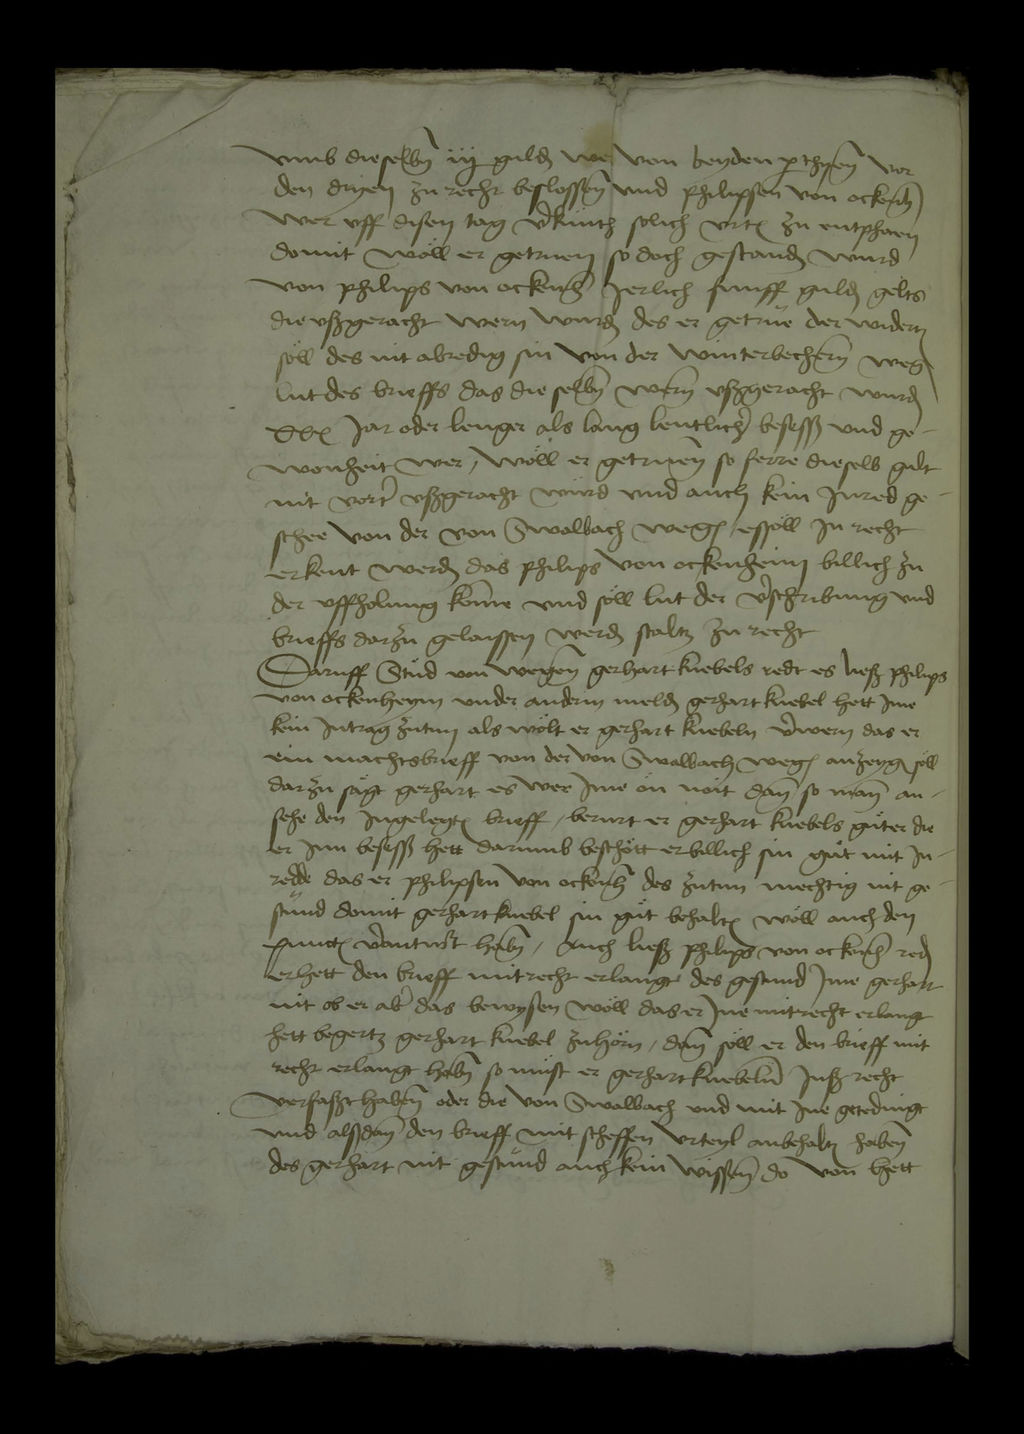 vmb dieselbñ iij guld we von beyden pthyeñ vor
den dryen zu recht beslosseñ vnd philipsen von ockenh
wer vff disen tag v'kunth solich vrt zu entphaen
domit wöll er getruen so doch gestand wurd
von philips von ockenh Jerlich funff guld gelts
die vßgeracht wern wurd des er getrüe der widert
söll des nit abredig sin von der winterbecherñ weg
lut des brieffs das die selbñ wern vßgeracht wurd
xxx Jar oder lenger als lang lentlich besess vnd ge-
wonheit wer, wöll er getrueñ so ferre dieselb gult
nit vort' vßgeracht würd vnd auch kein Jnred ge-
schee von der von Swalbach weg eß söll Jn recht
erkent werd das philips von ockenheim billich zu
der vffholung kome vnd söll lut der v'schribung vnd
brieffs darzu gelaissen werd staltz zu recht
Daruff Stud von wegeñ gerhart knebels redt es ließ philips
von ockenheym vnder anderm meld gerhart knebel hett Jme
kein Jntrag zutun als wölt er gerhart knebeln v'wern das er
ein machtsbrieff von der von Swalbach weg anzeyg söll
darzu sagt gerhart es wer Jme on noit dañ so mañ an-
sehe den Jngelegt brieff, berurt er gerhart knebels güter die
er Jnn besess hett darumb beschött er billich sin gut mit Jn-
redde das er philipsen von ockenh des zutun mechtig nit ge-
stund domit gerhart knebel sin gut behalt wöll auch den
punct v'antwort habñ, Auch ließ philips von ockenh red
er hett den brieff mit recht erlangt des gestund Jme gerhart
nit ob er ab' das bewysen wöll das er Jne mit recht erlangt
hett begertz gerhart knebel zuhörn, dañ söll er den brieff mit
recht erlangt habñ so müst er gerhart knebeln Jnß recht
verfaßt habeñ oder die von Swalbach vnd mit Jne getedingt
vnd alßdañ den brieff mit scheffen vrteyl anbehalt habeñ
des gerhart nit gestund auch kein wisseñ do von hett